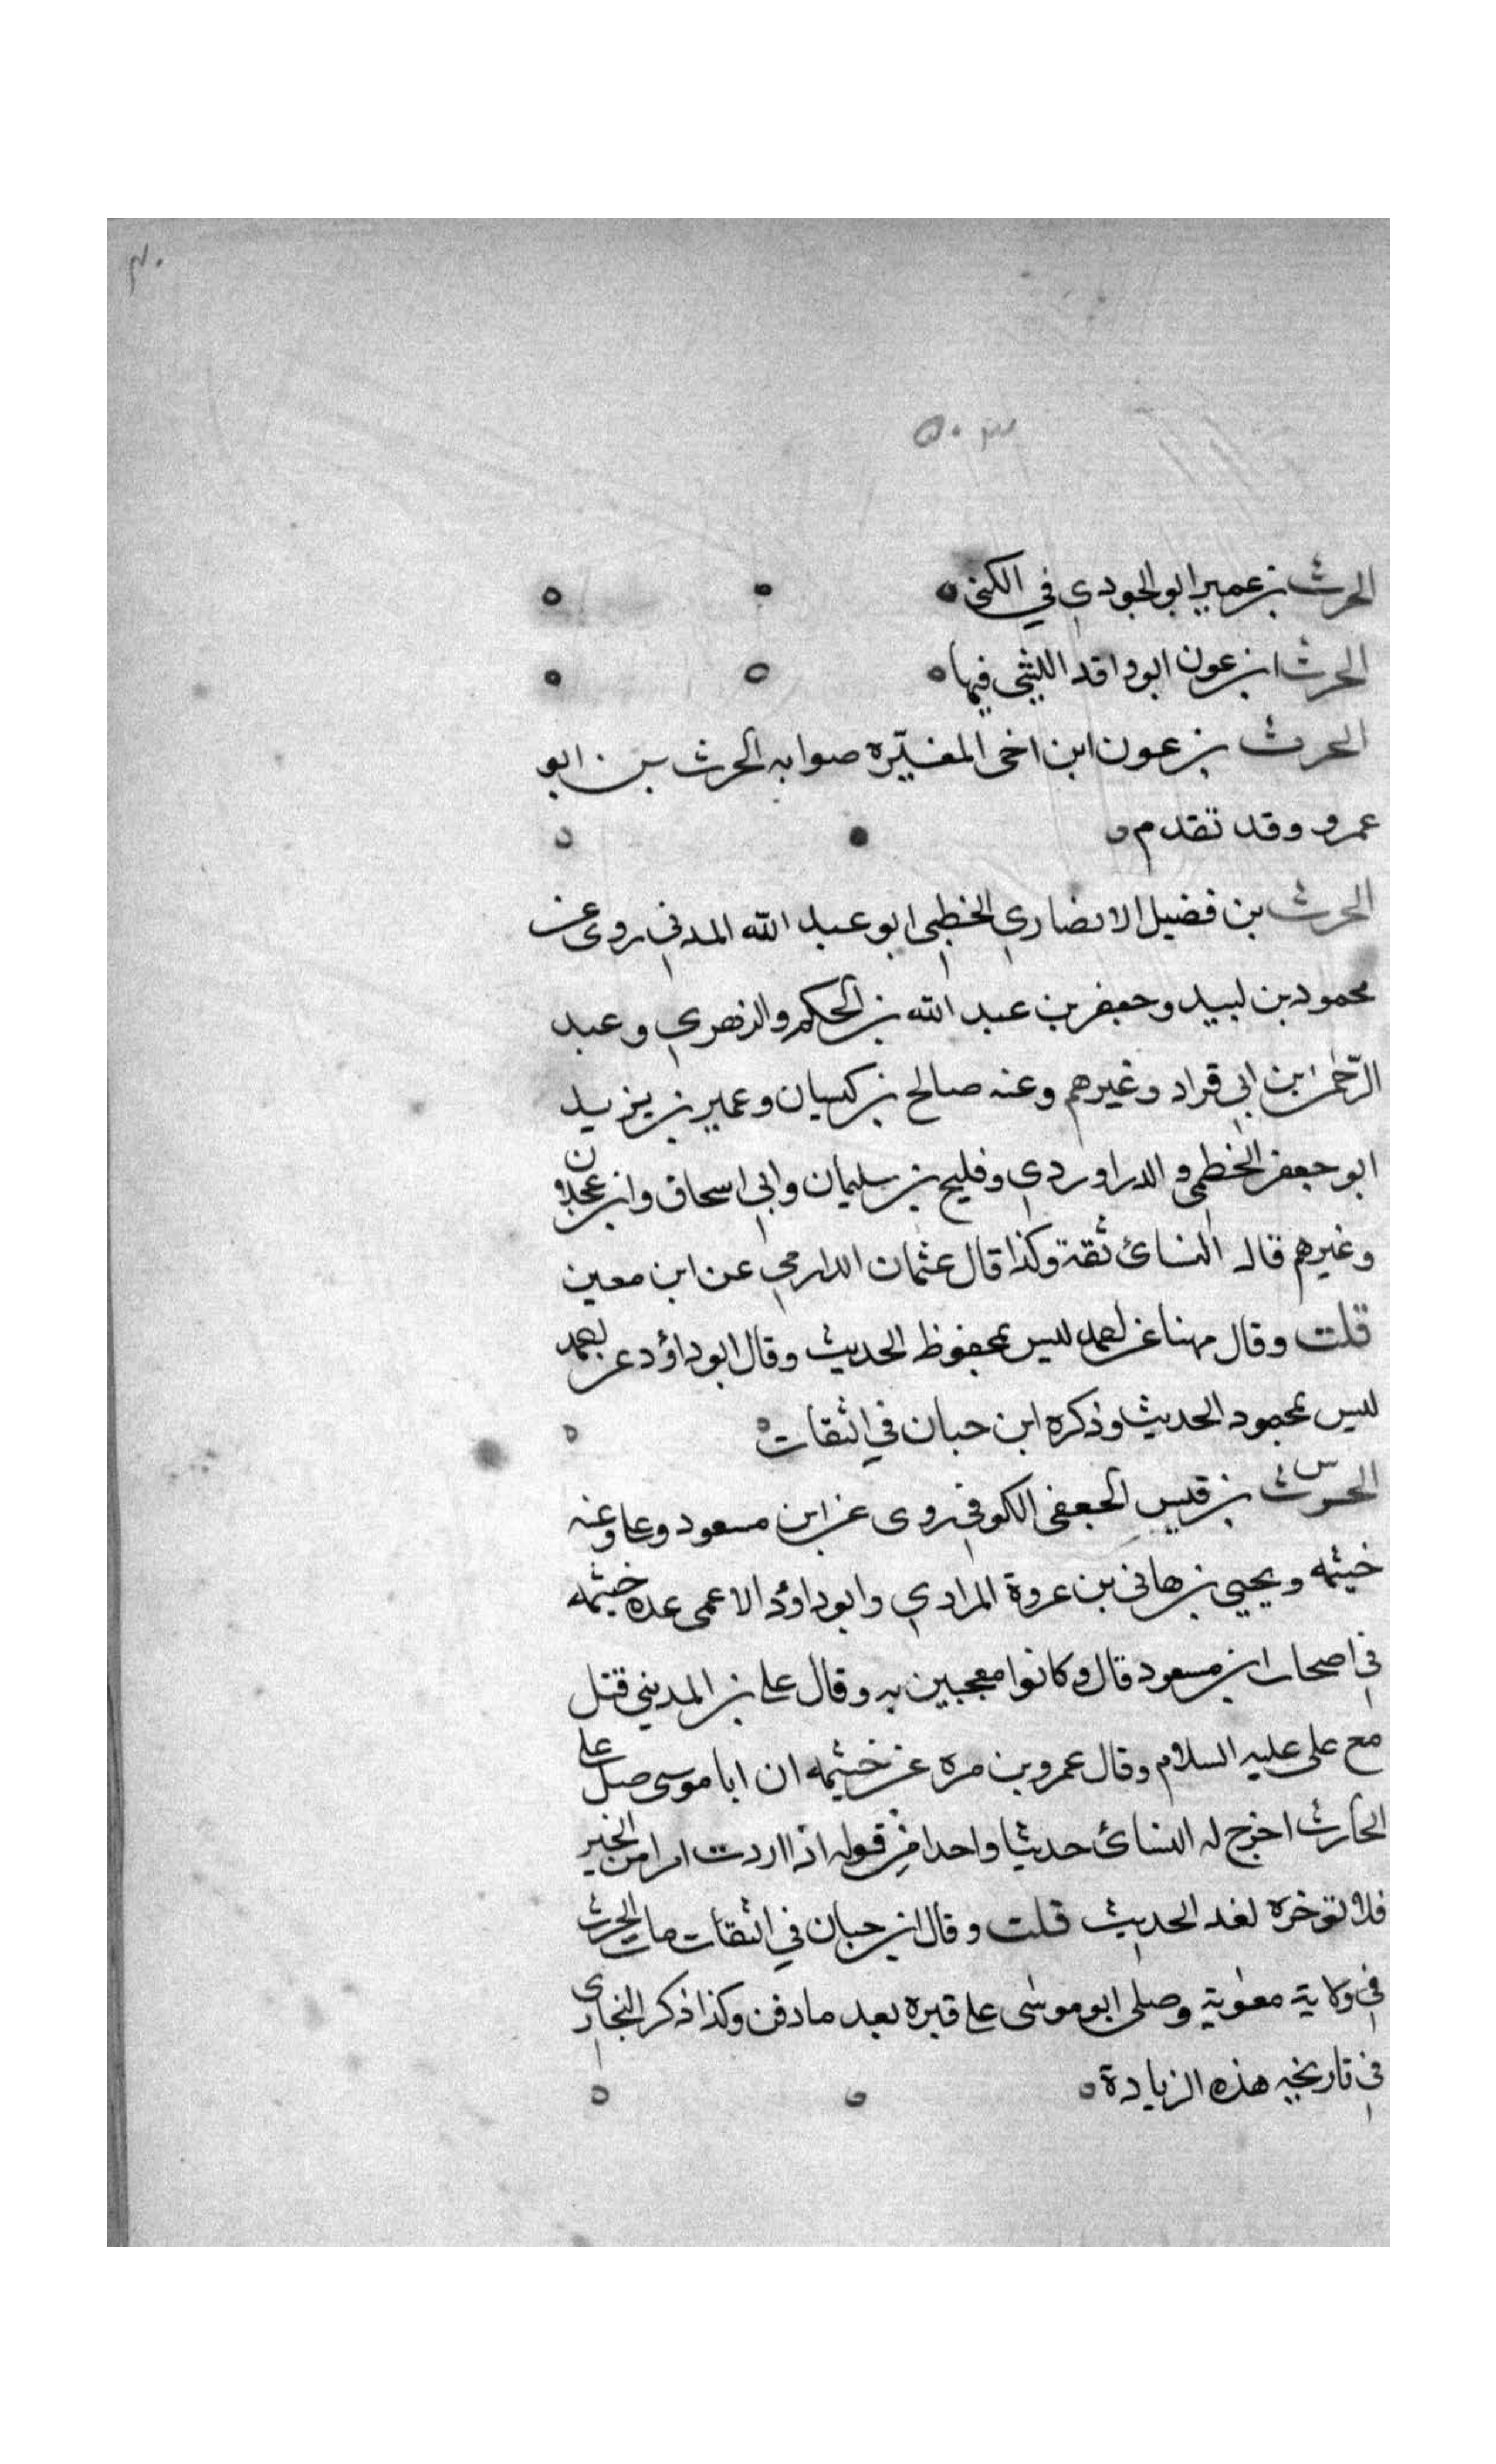 ٣٠
٥٠٣
الحرث بن عمير ابو الجودي في الكنى ه
الحرث ابن عون ابو واقد الليثي فيها ه
الحرث بن عون ابن اخى المغيّره صوابه الحرث بن ابو
عمرو وقد تقدم ه
الحرث بن فضيل الانصاري الخطمي ابو عبد الله المدني روى عن
محمود بن لبيد وجعفر بن عبد الله بن الحكم والزهري وعبد
الرّحمن بن ابي قراد وغيرهم وعنه صالح بن كيسان وعمير بن يزيد
ابو جعفر الخطمي والدراوردي وفليح بن سليمان وابي اسحاق وابن عجلان
وغيرهم قال النسائ ثقة وكذا قال عثمان الدارمي عن ابن معين
قلت وقال مهنا عن احمد ليس بمحفوظ الحديث وقال ابو داؤد عن احمد
ليس بمحمود الحديث وذكره ابن حبان في الثقات ه
س
الحرث بن قيس الجعفى الكوفي روى عن ابن مسعود وعلى وعنه
خيثمه ويحيى بن هانى بن عروة المرادي وابو داؤد الاعمى عده خيثمه
في اصحاب ابن مسعود قال وكانوا معجبين به وقال على بن المديني قتل
مع على عليه السلام وقال عمرو بن مره عن خيثمه ان ابا موسى صلى على
الحارث اخرج له النسائ حديثا واحدا من قوله اذا اردت امرا من الخير
فلا تؤخره لغد الحديث قلت وقال ابن حبان في الثقات مات الحرث
في ولاية معوية وصلى ابو موسى على قبره بعد ما دفن وكذا ذكر البخاري
في تاريخه هذه الزيادة ه